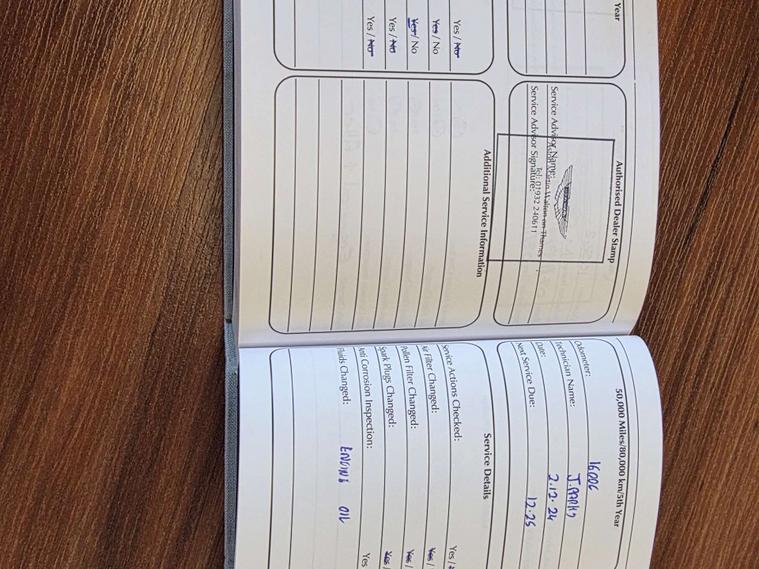 Year
Yes / No
Yes / No
Yes / No
Yes / No
Yes / No
Authorised Dealer Stamp
Service Advisor Name:
Aston Martin Walton on Thames
Tel: 01932 240611
Service Advisor Signature:
Additional Service Information
50,000 Miles/80,000 km/5th Year
Odometer: 16006
Technician Name: J.PARKS
Date: 2.12.24
Next Service Due: 12.25
Service Details
Service Actions Checked: Yes /
Air Filter Changed: Yes /
Pollen Filter Changed: Yes /
Spark Plugs Changed: Yes /
Anti Corrosion Inspection: Yes
Fluids Changed: ENGINE OIL